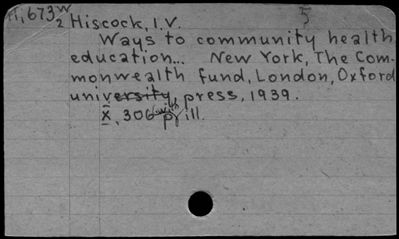 H,673w 5
2 Hiscock, I.V.
Ways to community health
education... New York, The Com-
monwealth fund, London, Oxford
university, press, 1939.
x, 306 p. ill.